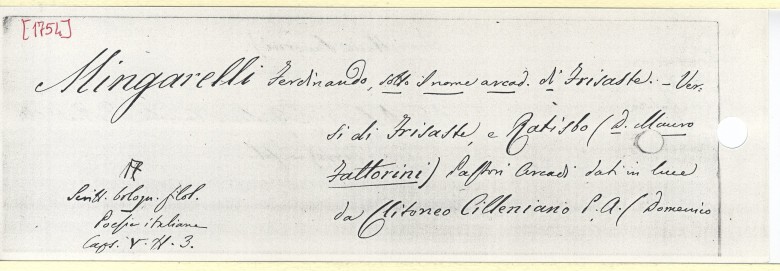 [1754]
Mingarelli Ferdinando, sotto il nome arcad. di Frisaste. - Ver,
si di Frisaste, e Ratisbo (D. Mauro
Fattorini) Pastori Arcadi dati in luce
da Clitoneo Cilleniano P. A. (Domenico
17
Scritt. bologn. filol.
Poesie italiane
Caps. V. N. 3.